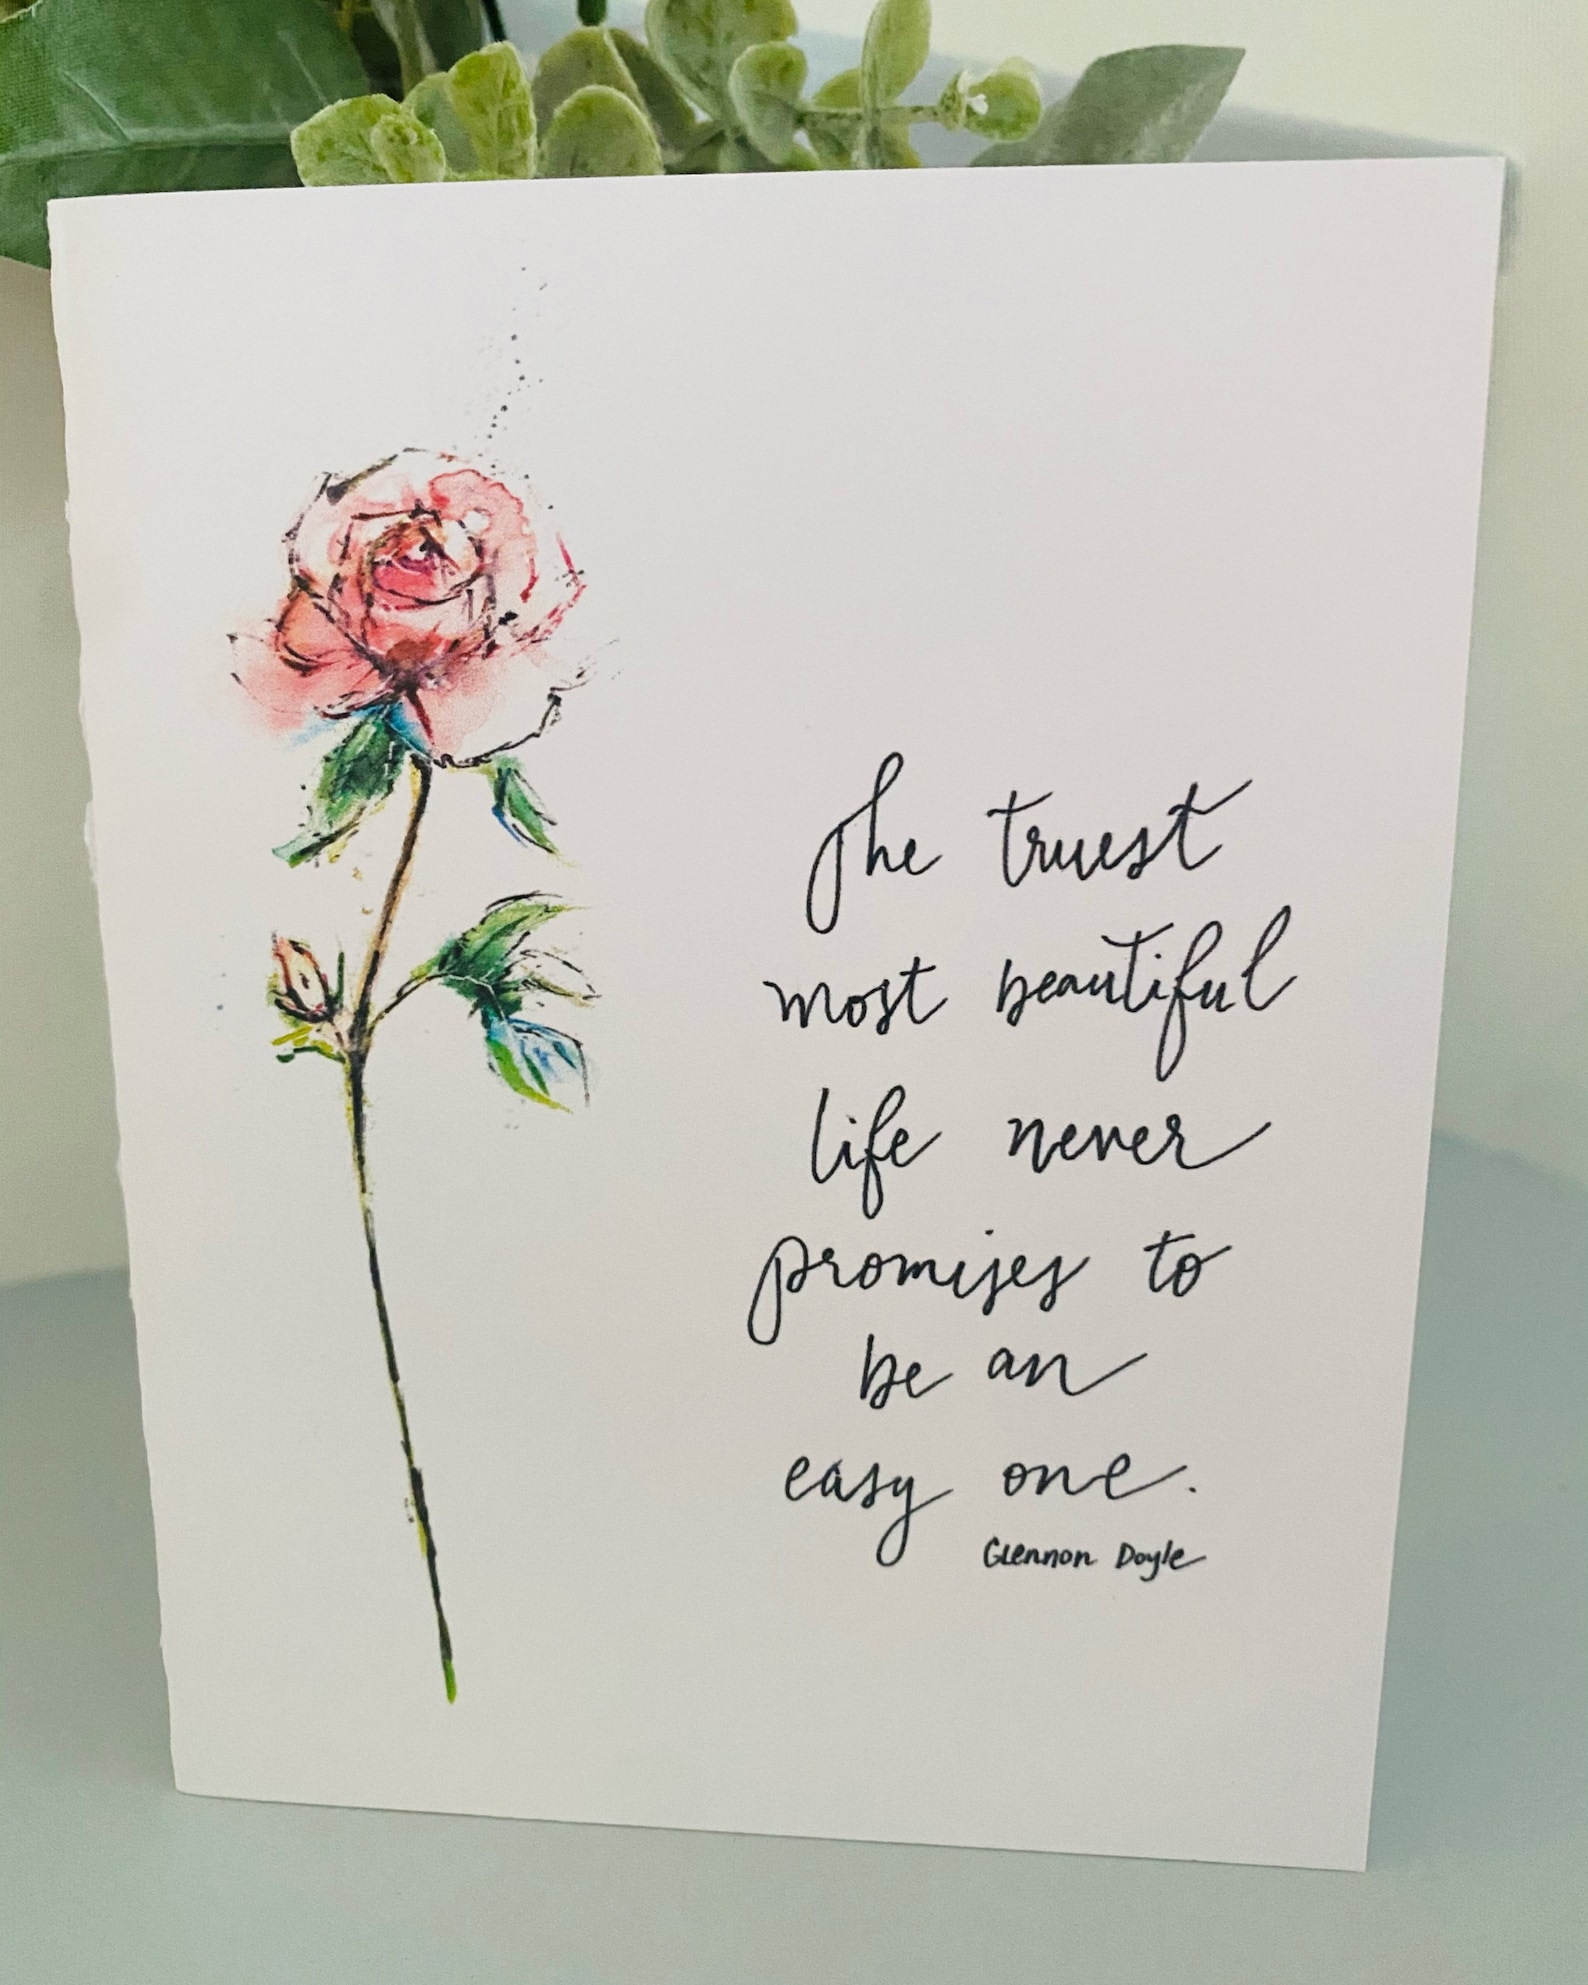 The truest
most beautiful
life never
promises to
be an
easy one.
Glennon Doyle